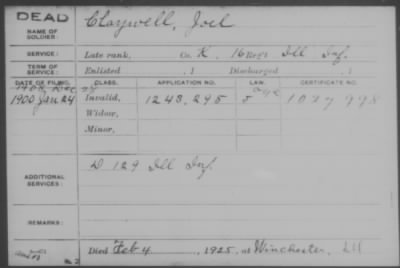 DEAD
NAME OF SOLDIER: Claywell, Joel
SERVICE: Late rank, Co. K, 16 Reg't Ill Inf.
TERM OF SERVICE: Enlisted , 1 Discharged , 1
DATE OF FILING. CLASS. APPLICATION NO. LAW. CERTIFICATE NO.
1900 Jan 24 Invalid, 1248,295 1027998
Widow,
Minor,
ADDITIONAL SERVICES: D 129 Ill Inf.
REMARKS:
Died Feb 4, 1925, at Winchester, Ill